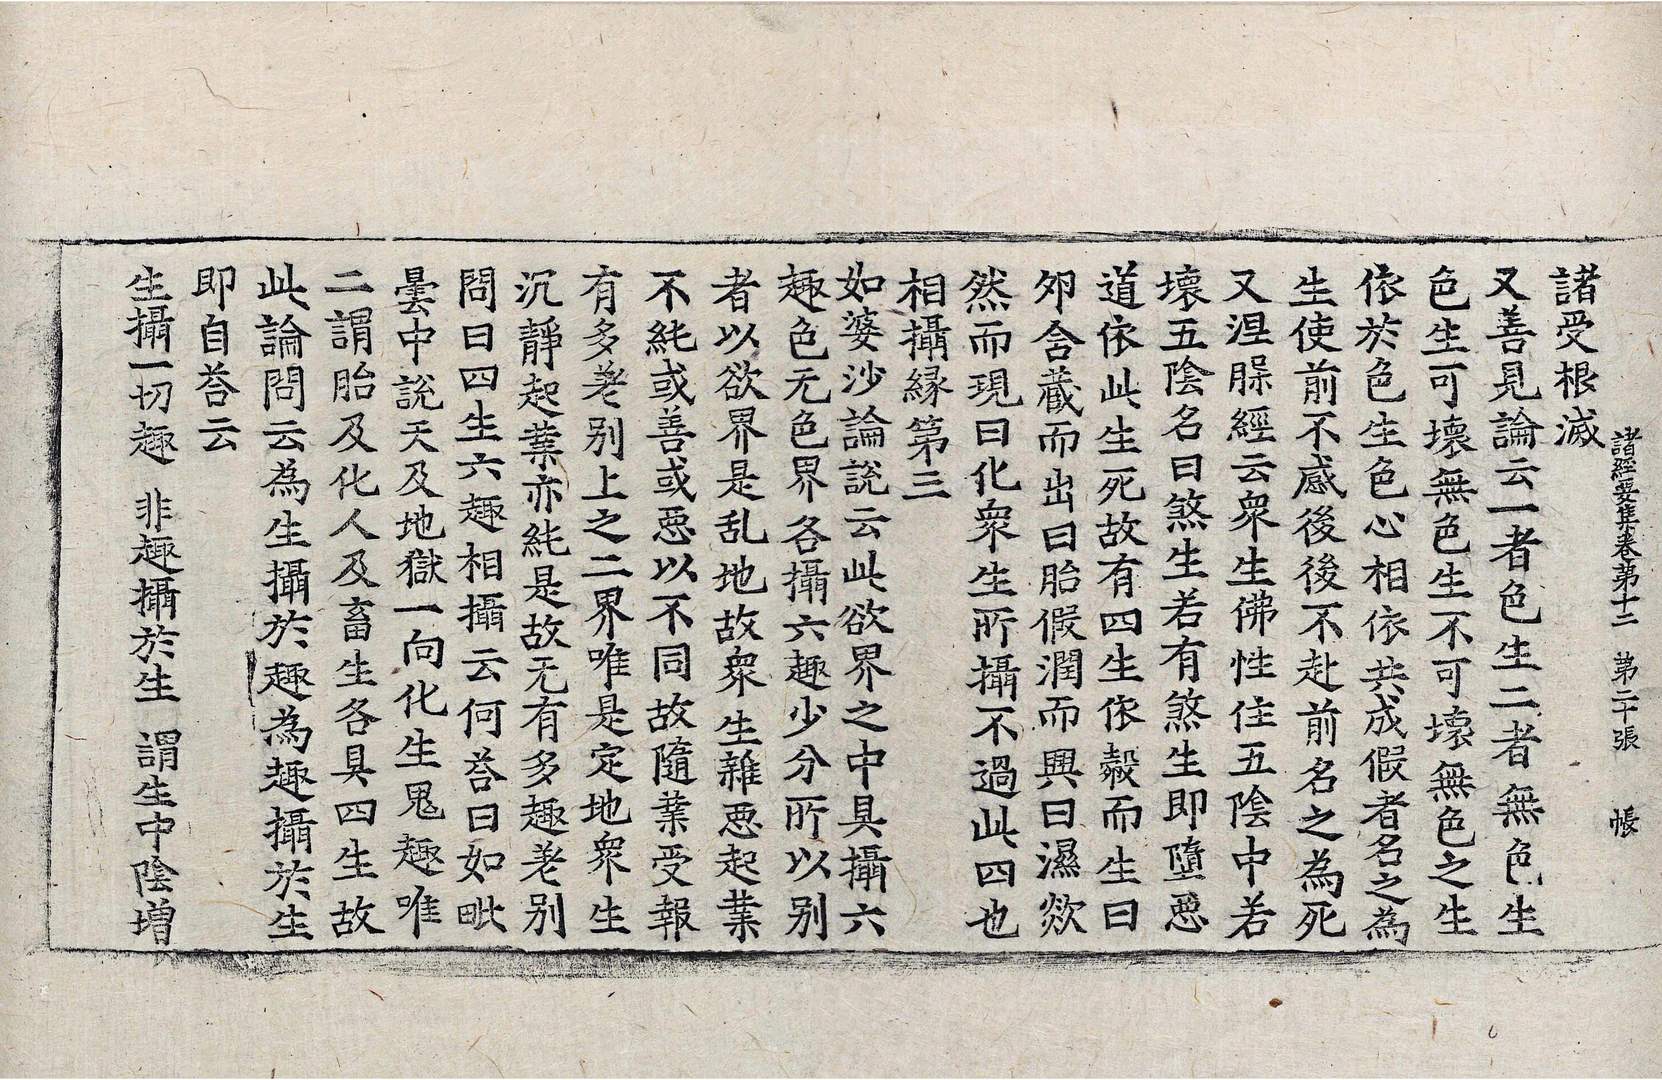 諸經要集卷第十二　第二十張　帳
諸受根滅
又善見論云一者色生二者無色生
色生可壞無色生不可壞無色之生
依於色生色心相依共成假者名之為
生使前不感後後不赴前名之為死
又涅槃經云衆生佛性住五陰中若
壞五陰名曰煞生若有煞生即墮惡
道依此生死故有四生依㲉而生曰
夘含藏而出曰胎假潤而興曰濕欻
然而現曰化衆生所攝不過此四也
相攝緣第三
如婆沙論說云此欲界之中具攝六
趣色无色界各攝六趣少分所以別
者以欲界是乱地故衆生雜惡起業
不純或善或惡以不同故隨業受報
有多差別上之二界唯是定地衆生
沉靜起業亦純是故无有多趣差別
問曰四生六趣相攝云何荅曰如毗
曇中說天及地獄一向化生鬼趣唯
二謂胎及化人及畜生各具四生故
此論問云為生攝於趣為趣攝於生
即自荅云
生攝一切趣　非趣攝於生　謂生中陰增